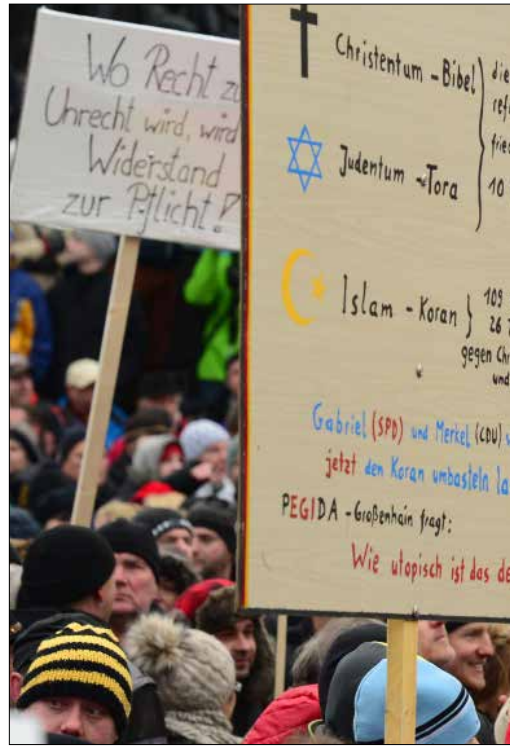 Wo Recht zu
Unrecht wird, wird
Widerstand
zur Pflicht!
Christentum - Bibel
Judentum - Tora
10
Islam - Koran
109
26
gegen
und
Gabriel (SPD) und Merkel (CDU)
jetzt den Koran umbasteln
PEGIDA - Großenhain fragt:
Wie utopisch ist das